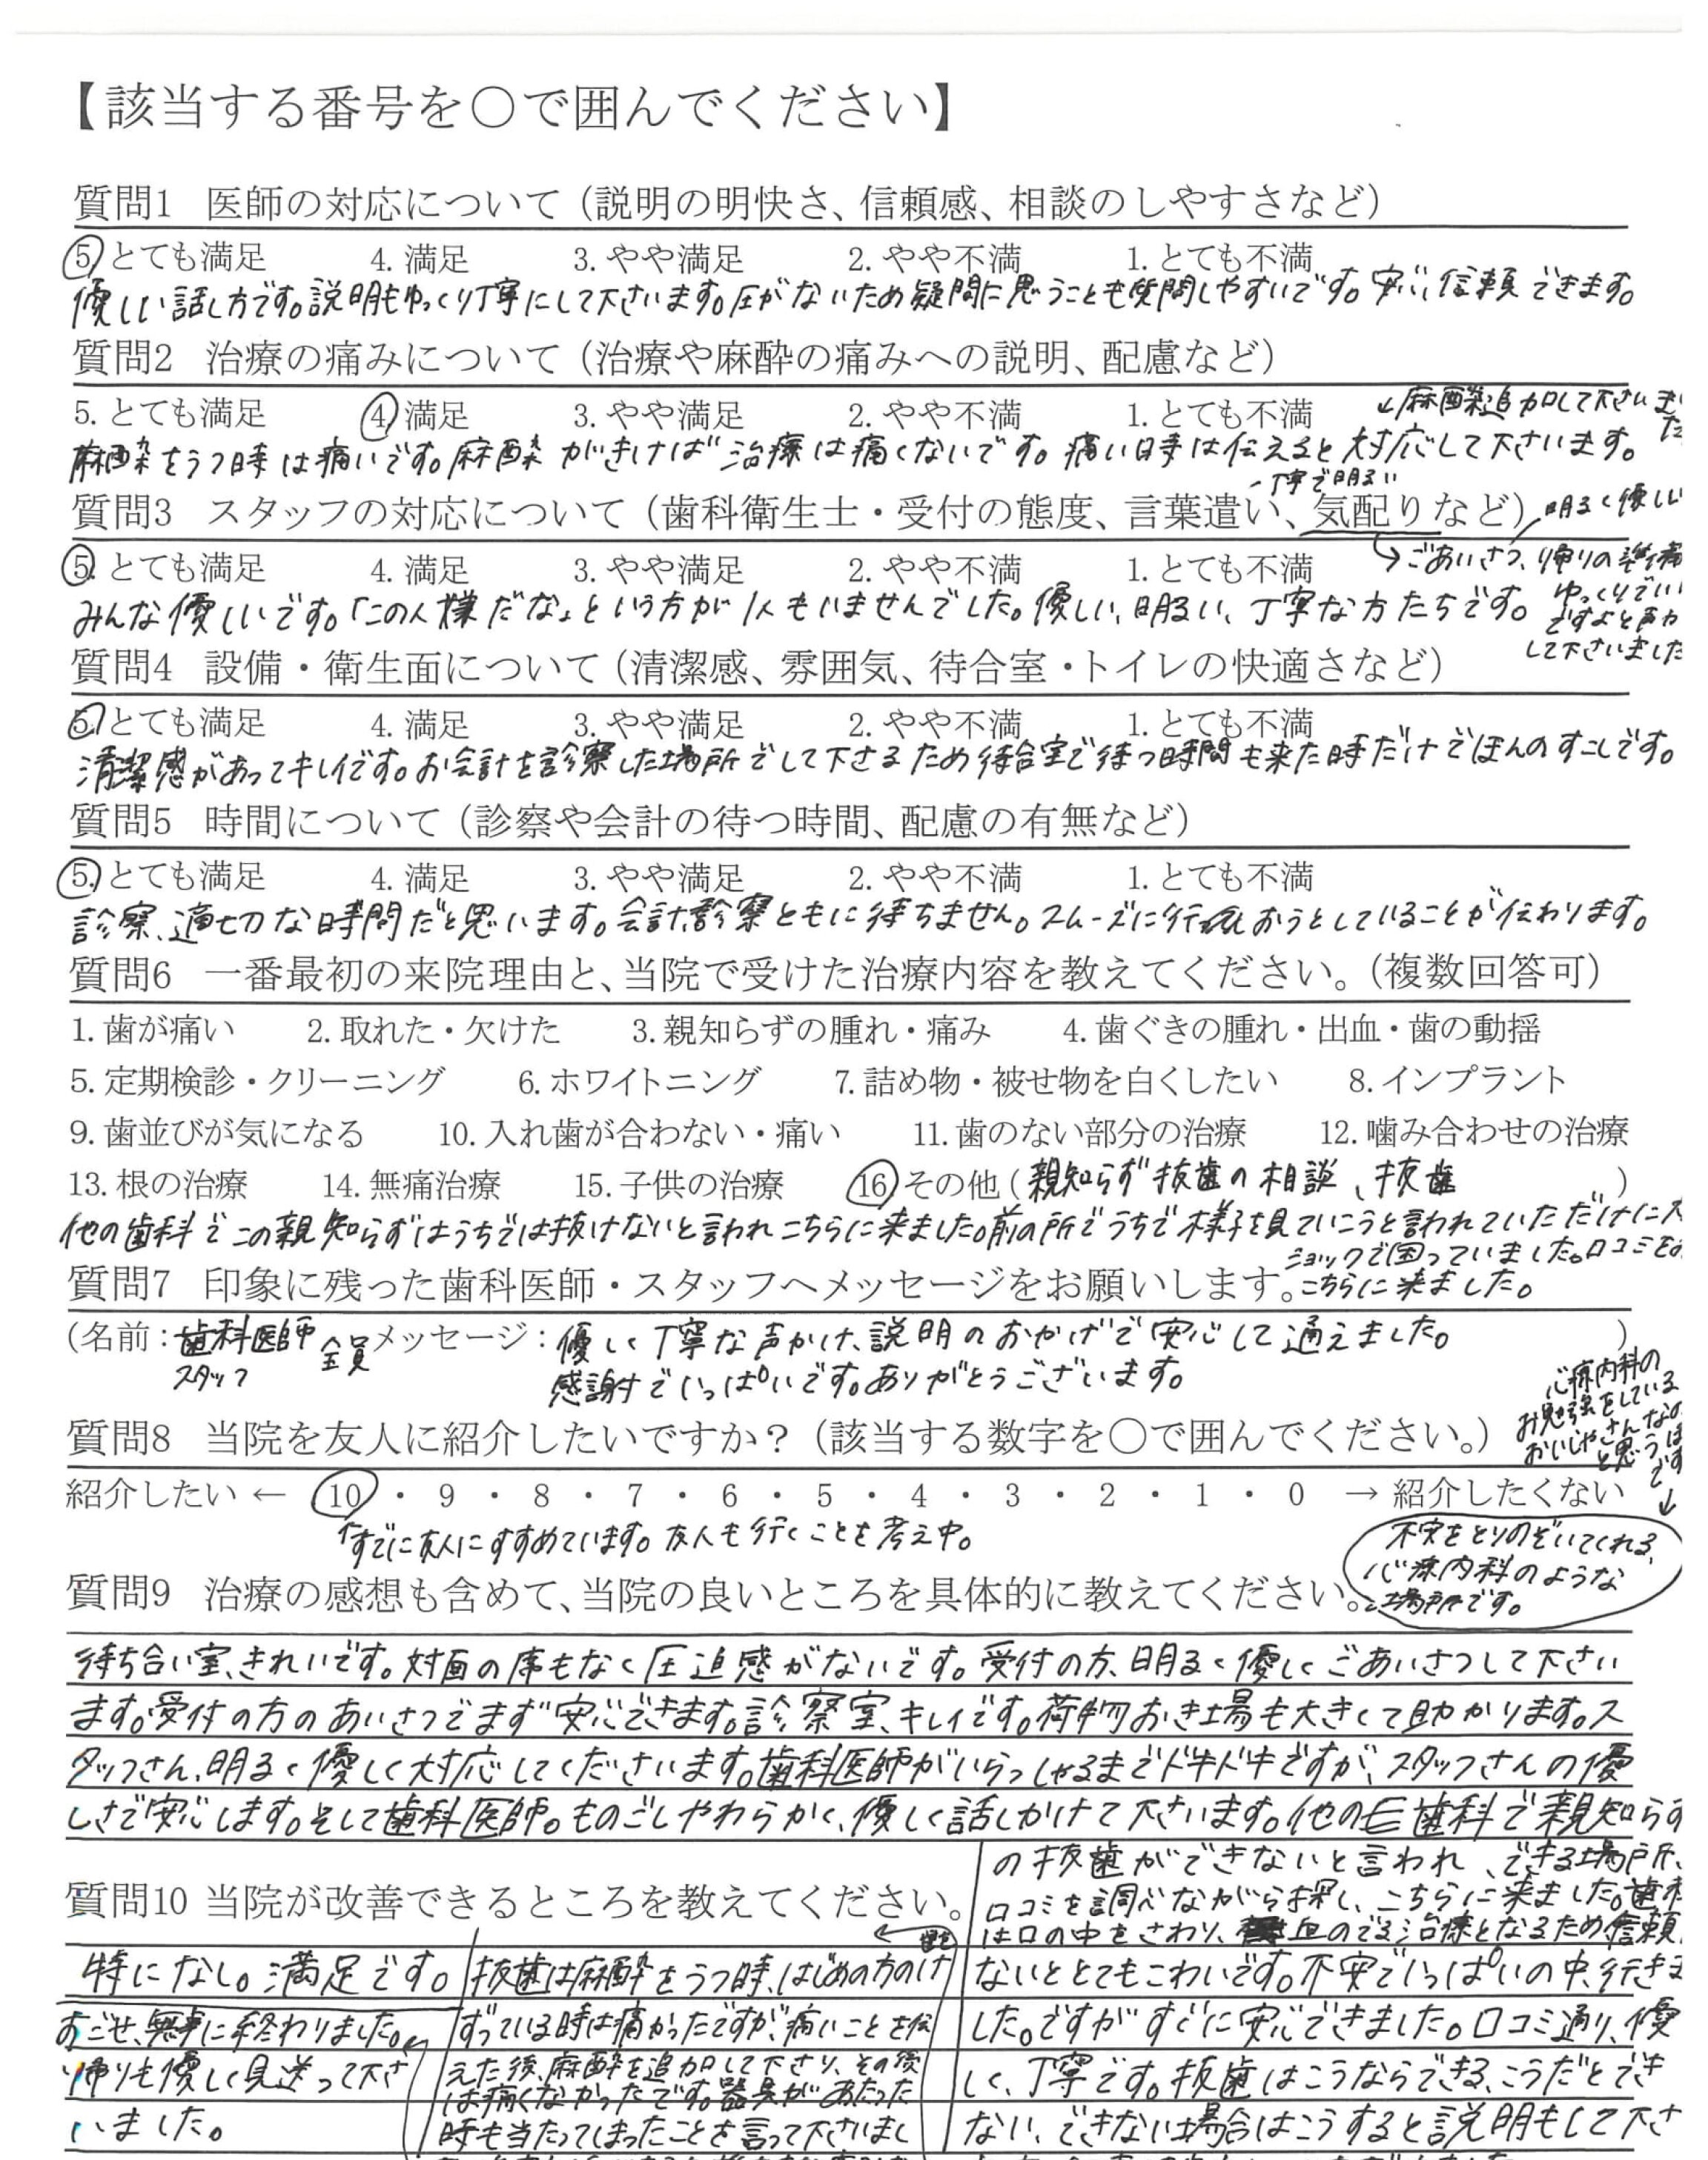 【該当する番号を〇で囲んでください】
質問1 医師の対応について（説明の明快さ、信頼感、相談のしやすさなど）
5. とても満足 4. 満足 3. やや満足 2. やや不満 1. とても不満
優しい話し方です。説明もゆっくり丁寧にして下さいます。圧がないため疑問に思うことも質問しやすいです。安心、信頼できます。
質問2 治療の痛みについて（治療や麻酔の痛みへの説明、配慮など）
5. とても満足 4. 満足 3. やや満足 2. やや不満 1. とても不満
↓麻酔追加して下さいまし
た
麻酔をうつ時は痛いです。麻酔がきけば治療は痛くないです。痛い時は伝えると対応して下さいます。
丁寧で明るい
質問3 スタッフの対応について（歯科衛生士・受付の態度、言葉遣い、気配りなど）
明るく優しい
5. とても満足 4. 満足 3. やや満足 2. やや不満 1. とても不満
→ごあいさつ、帰りの準備
ゆっくりでいい
ですよと声か
して下さいました
みんな優しいです。「この人嫌だな」という方が1人もいませんでした。優しい、明るい、丁寧な方たちです。
質問4 設備・衛生面について（清潔感、雰囲気、待合室・トイレの快適さなど）
5. とても満足 4. 満足 3. やや満足 2. やや不満 1. とても不満
清潔感があってキレイです。お会計を診察した場所でして下さるため待合室で待つ時間も来た時だけでほんのすこしです。
質問5 時間について（診察や会計の待つ時間、配慮の有無など）
5. とても満足 4. 満足 3. やや満足 2. やや不満 1. とても不満
診察、適切な時間だと思います。会計、診察ともに待ちません。スムーズに行おうとしていることが伝わります。
質問6 一番最初の来院理由と、当院で受けた治療内容を教えてください。（複数回答可）
1. 歯が痛い 2. 取れた・欠けた 3. 親知らずの腫れ・痛み 4. 歯ぐきの腫れ・出血・歯の動揺
5. 定期検診・クリーニング 6. ホワイトニング 7. 詰め物・被せ物を白くしたい 8. インプラント
9. 歯並びが気になる 10. 入れ歯が合わない・痛い 11. 歯のない部分の治療 12. 噛み合わせの治療
13. 根の治療 14. 無痛治療 15. 子供の治療 16. その他（親知らず抜歯の相談、抜歯 ）
他の歯科でこの親知らずはうちでは抜けないと言われこちらに来ました。前の所でうちで様子を見ていこうと言われていただけに
ショックで困っていました。口コミを
こちらに来ました。
質問7 印象に残った歯科医師・スタッフへメッセージをお願いします。
（名前：歯科医師 スタッフ 全員 メッセージ：優しく丁寧な声かけ、説明のおかげで安心して通えました。 ）
感謝でいっぱいです。ありがとうございます。
質問8 当院を友人に紹介したいですか？（該当する数字を〇で囲んでください。）
心療内科の
お勉強をしている
おいしゃさんなの
と思うほ
どです
紹介したい ← 10 ・ 9 ・ 8 ・ 7 ・ 6 ・ 5 ・ 4 ・ 3 ・ 2 ・ 1 ・ 0 → 紹介したくない
↑すでに友人にすすめています。友人も行くことを考え中。
不安をとりのぞいてくれる、
心療内科のような
場所です。
質問9 治療の感想も含めて、当院の良いところを具体的に教えてください。
待ち合い室、きれいです。対面の席もなく圧迫感がないです。受付の方、明るく優しくごあいさつして下さい
ます。受付の方のあいさつでまず安心できます。診察室、キレイです。荷物おき場も大きくて助かります。ス
タッフさん、明るく優しく対応してくださいます。歯科医師がいらっしゃるまでドキドキですが、スタッフさんの優
しさで安心します。そして歯科医師。ものごしやわらかく、優しく話しかけて下さいます。他の歯科で親知らず
の抜歯ができないと言われ、できる場所、
口コミを調べながら探し、こちらに来ました。歯科
は口の中をさわり、血のでる治療となるため信頼
ないととてもこわいです。不安でいっぱいの中、行きま
した。ですがすぐに安心できました。口コミ通り、優
しく、丁寧です。抜歯はこうならできる、こうだとでき
ない、できない場合はこうすると説明もして下さ
質問10 当院が改善できるところを教えてください。
特になし。満足です。
抜歯は麻酔をうつ時、はじめの方のけ
ずっている時は痛かったですが、痛いことを伝
えた後、麻酔を追加して下さり、その後
は痛くなかったです。器具があたった
時も当たってしまったことを言って下さいまし
すごせ、無事に終わりました。
帰りも優しく見送って下さ
いました。